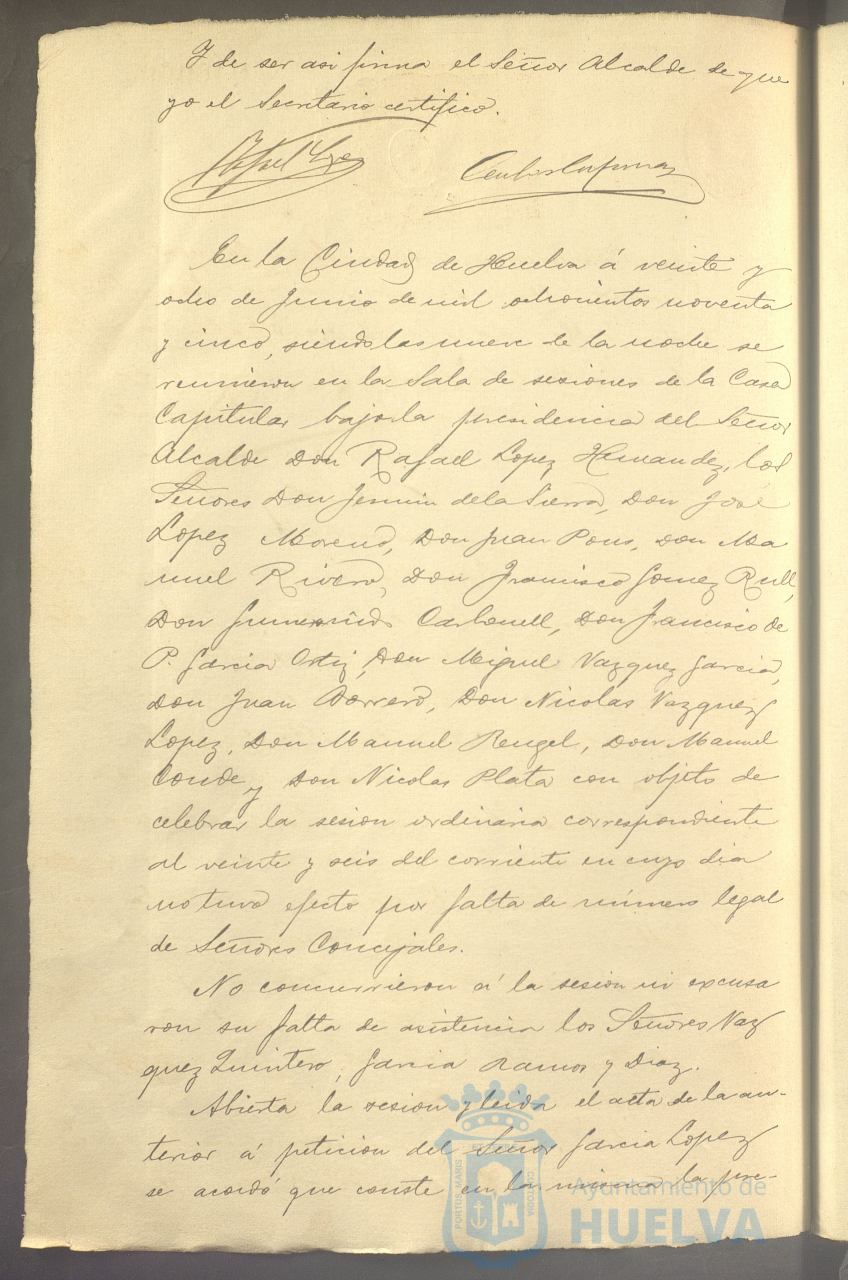 Y de ser asi firma el Señor Alcalde de que
yo el Secretario certifico.
Rafael Lopez
En la Ciudad de Huelva á veinte y
ocho de Junio de mil ochocientos noventa
y cinco, siendo las nueve de la noche se
reunieron en la Sala de sesiones de la Casa
Capitular bajo la presidencia del Señor
Alcalde Don Rafael Lopez Hernandez, los
Señores Don Fermin de la Sierra, Don José
Lopez Moreno, Don Juan Pons, Don Ma
nuel Rivero, Don Francisco Gomez Rull,
Don Gumersindo Carbonell, Don Francisco de
P. Garcia Ortiz, Don Miguel Vazquez Garcia,
Don Juan Borrero, Don Nicolas Vazquez
Lopez, Don Manuel Rengel, Don Manuel
Conde y Don Nicolas Plata con objeto de
celebrar la sesion ordinaria correspondiente
al veinte y seis del corriente en cuyo dia
no tuvo efecto por falta de número legal
de Señores Concejales.
No concurrieron á la sesion ni excusa
ron su falta de asistencia los Señores Vaz
quez Quintero, Garcia Ramos y Diaz.
Abierta la sesion y leida el acta de la an-
terior á peticion del Señor Garcia Lopez
se acordó que conste en la misma la pre-
PORTUS MARIS
CUSTODIA
Ayuntamiento de
HUELVA